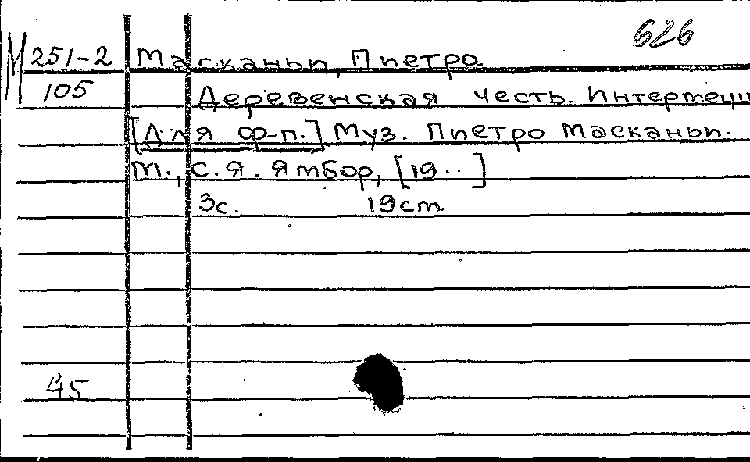 626
М 251-2 Масканьи, Пиетро
105 Деревенская честь. Интермецц
[Для ф-п.] Муз. Пиетро Масканьи.
М., С. Я. Ямбор, [19..]
3с. 19см
45